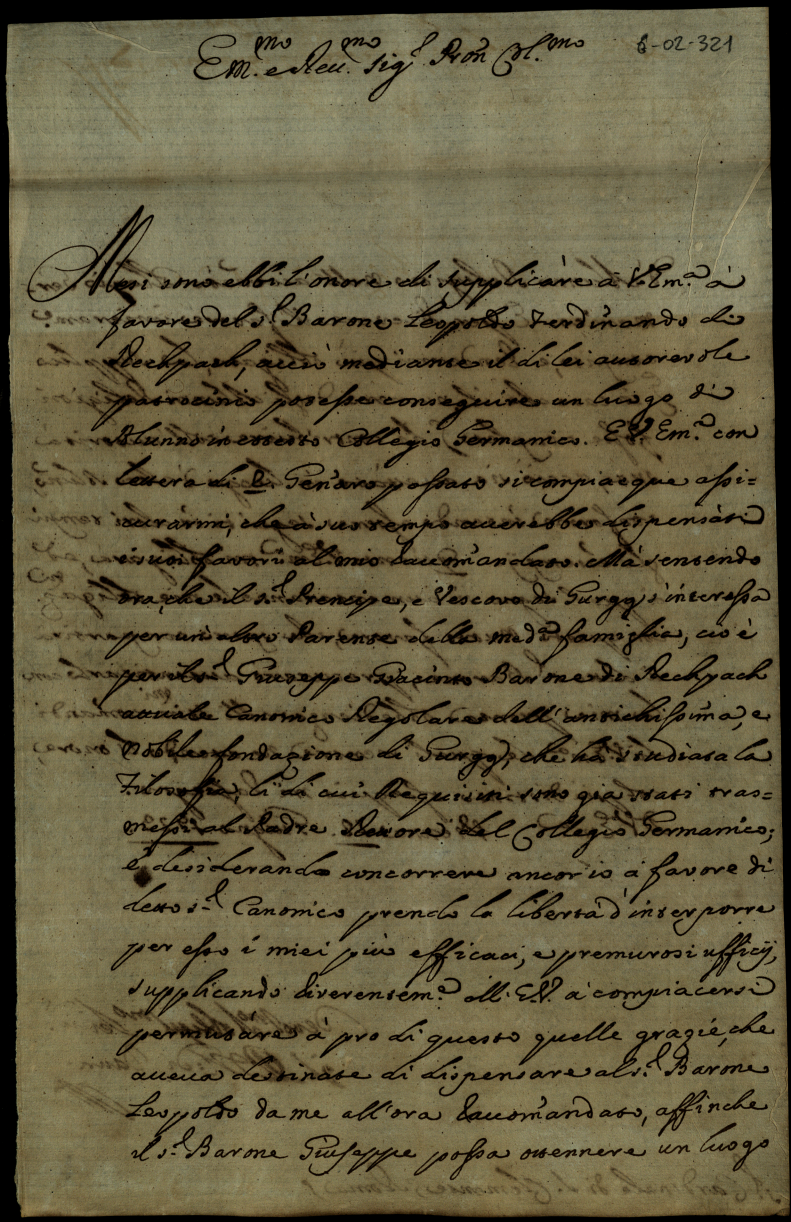 6-02-321
Em.mo e Reu.mo Sig.r Pron Col.mo
Mesi sono ebbi l'onore di supplicare a V. Em.a à
favore del s.r Barone Leopoldo Ferdinando di
Rechpach, acciò mediante il di lei autorevole
patrocinio potesse conseguire un luogo di
Alunno in cotesto Collegio Germanico. E V. Em.a con
lettera di Genaro passato si compiacque assi=
curarmi, che à suo tempo auerebbe dispensati
i suoi favori al mio Raccomandato. Mà sentendo
ora, che il s.r Prencipe, e Vescovo di Gurgg s'interessa
per un altro Parente della med.a famiglia, cio è
per il s.r Giuseppe Giacinto Barone di Rechpach
attuale Canonico Regolare dell'antichissima, e
nobile fondazione di Gurgg, che hà studiata la
Filosofia, li di cui Requisiti sono gia stati tras=
messi al Padre Rettore del Collegio Germanico;
e desiderando concorrere ancor io à favore di
detto s.r Canonico prendo la libertà d'interporre
per esso i miei più efficaci, e premurosi ufficij,
supplicando riverentem.e all' E.V. à compiacersi
permutare à pro di questo quelle grazie, che
aueua destinate di dispensare al s.r Barone
Leopoldo da me all'ora Raccomandato, affinche
il s.r Barone Giuseppe possa ottennere un luogo